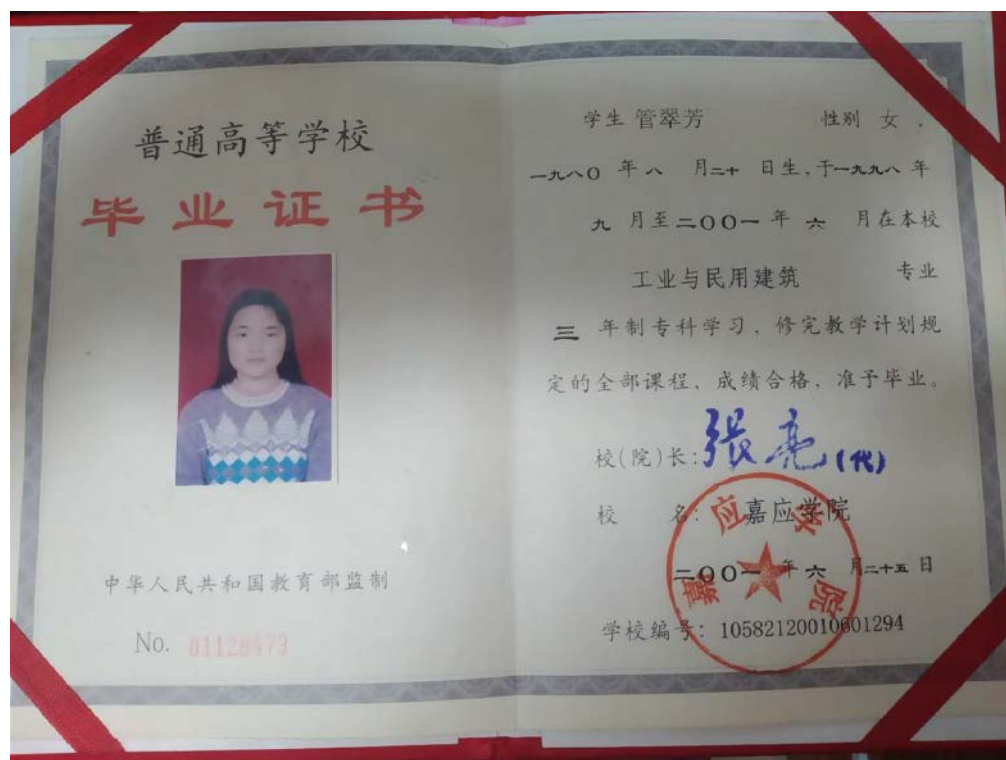 普通高等学校
毕业证书
中华人民共和国教育部监制
No. 01128473
学生 管翠芳 性别 女
一九八〇 年 八 月 二十 日生，于一九九八 年
九 月至 二〇〇一 年 六 月在本校
工业与民用建筑 专业
三 年制专科学习，修完教学计划规
定的全部课程，成绩合格，准予毕业。
校(院)长: 张亮(代)
校 名: 嘉应学院
二〇〇一 年 六 月 二十五 日
学校编号: 10582120010601294
嘉应学院